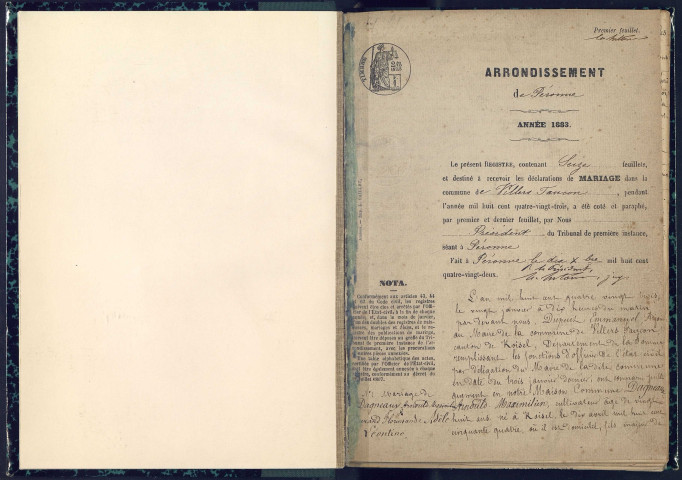 Premier feuillet.
TIMBRE
ARRONDISSEMENT
de Péronne
ANNÉE 1883.
Le présent REGISTRE, contenant Seize feuillets,
et destiné à recevoir les déclarations de MARIAGE dans la
commune de Villers Faucon, pendant
l'année mil huit cent quatre-vingt-trois, a été coté et paraphé,
par premier et dernier feuillet, par Nous
Président du Tribunal de première instance,
séant à Péronne
Fait à Péronne le dix mil huit cent
quatre-vingt-deux.
NOTA.
Conformément aux articles 43, 44
et 63 du Code civil, les registres
doivent être clos et arrêtés par l'Offi-
cier de l'Etat-civil, à la fin de chaque
année, et, dans le mois de janvier,
l'un des doubles des registres de nais-
sances, mariages et décès, et le re-
gistre des publications de mariage,
doivent être déposés au greffe du Tri-
bunal de première instance de l'ar-
rondissement, avec les procurations
et autres pièces annexées.
Une table alphabétique des actes,
certifiée par l'Officier de l'Etat-civil,
doit être également annexée à chaque
registre, conformément au décret du
juillet 1807.
L'an mil huit cent quatre vingt trois,
le vingt janvier à dix heures du matin
par devant nous, Dupuis, Emmanuel
Maire de la commune de Villers Faucon
canton de Roisel, Département de la Somme
remplissant les fonctions d'officier de l'état civil
par délégation du Maire de la dite commune
en date du trois janvier dernier, ont comparu
en notre Maison Commune Dagneaux
Maximilien, cultivateur âgé de vingt
huit ans né à Roisel le dix avril mil huit cent
cinquante quatre, où il est domicilié, fils majeur de
Mariage de
Dagneaux
Adèle
Léontine